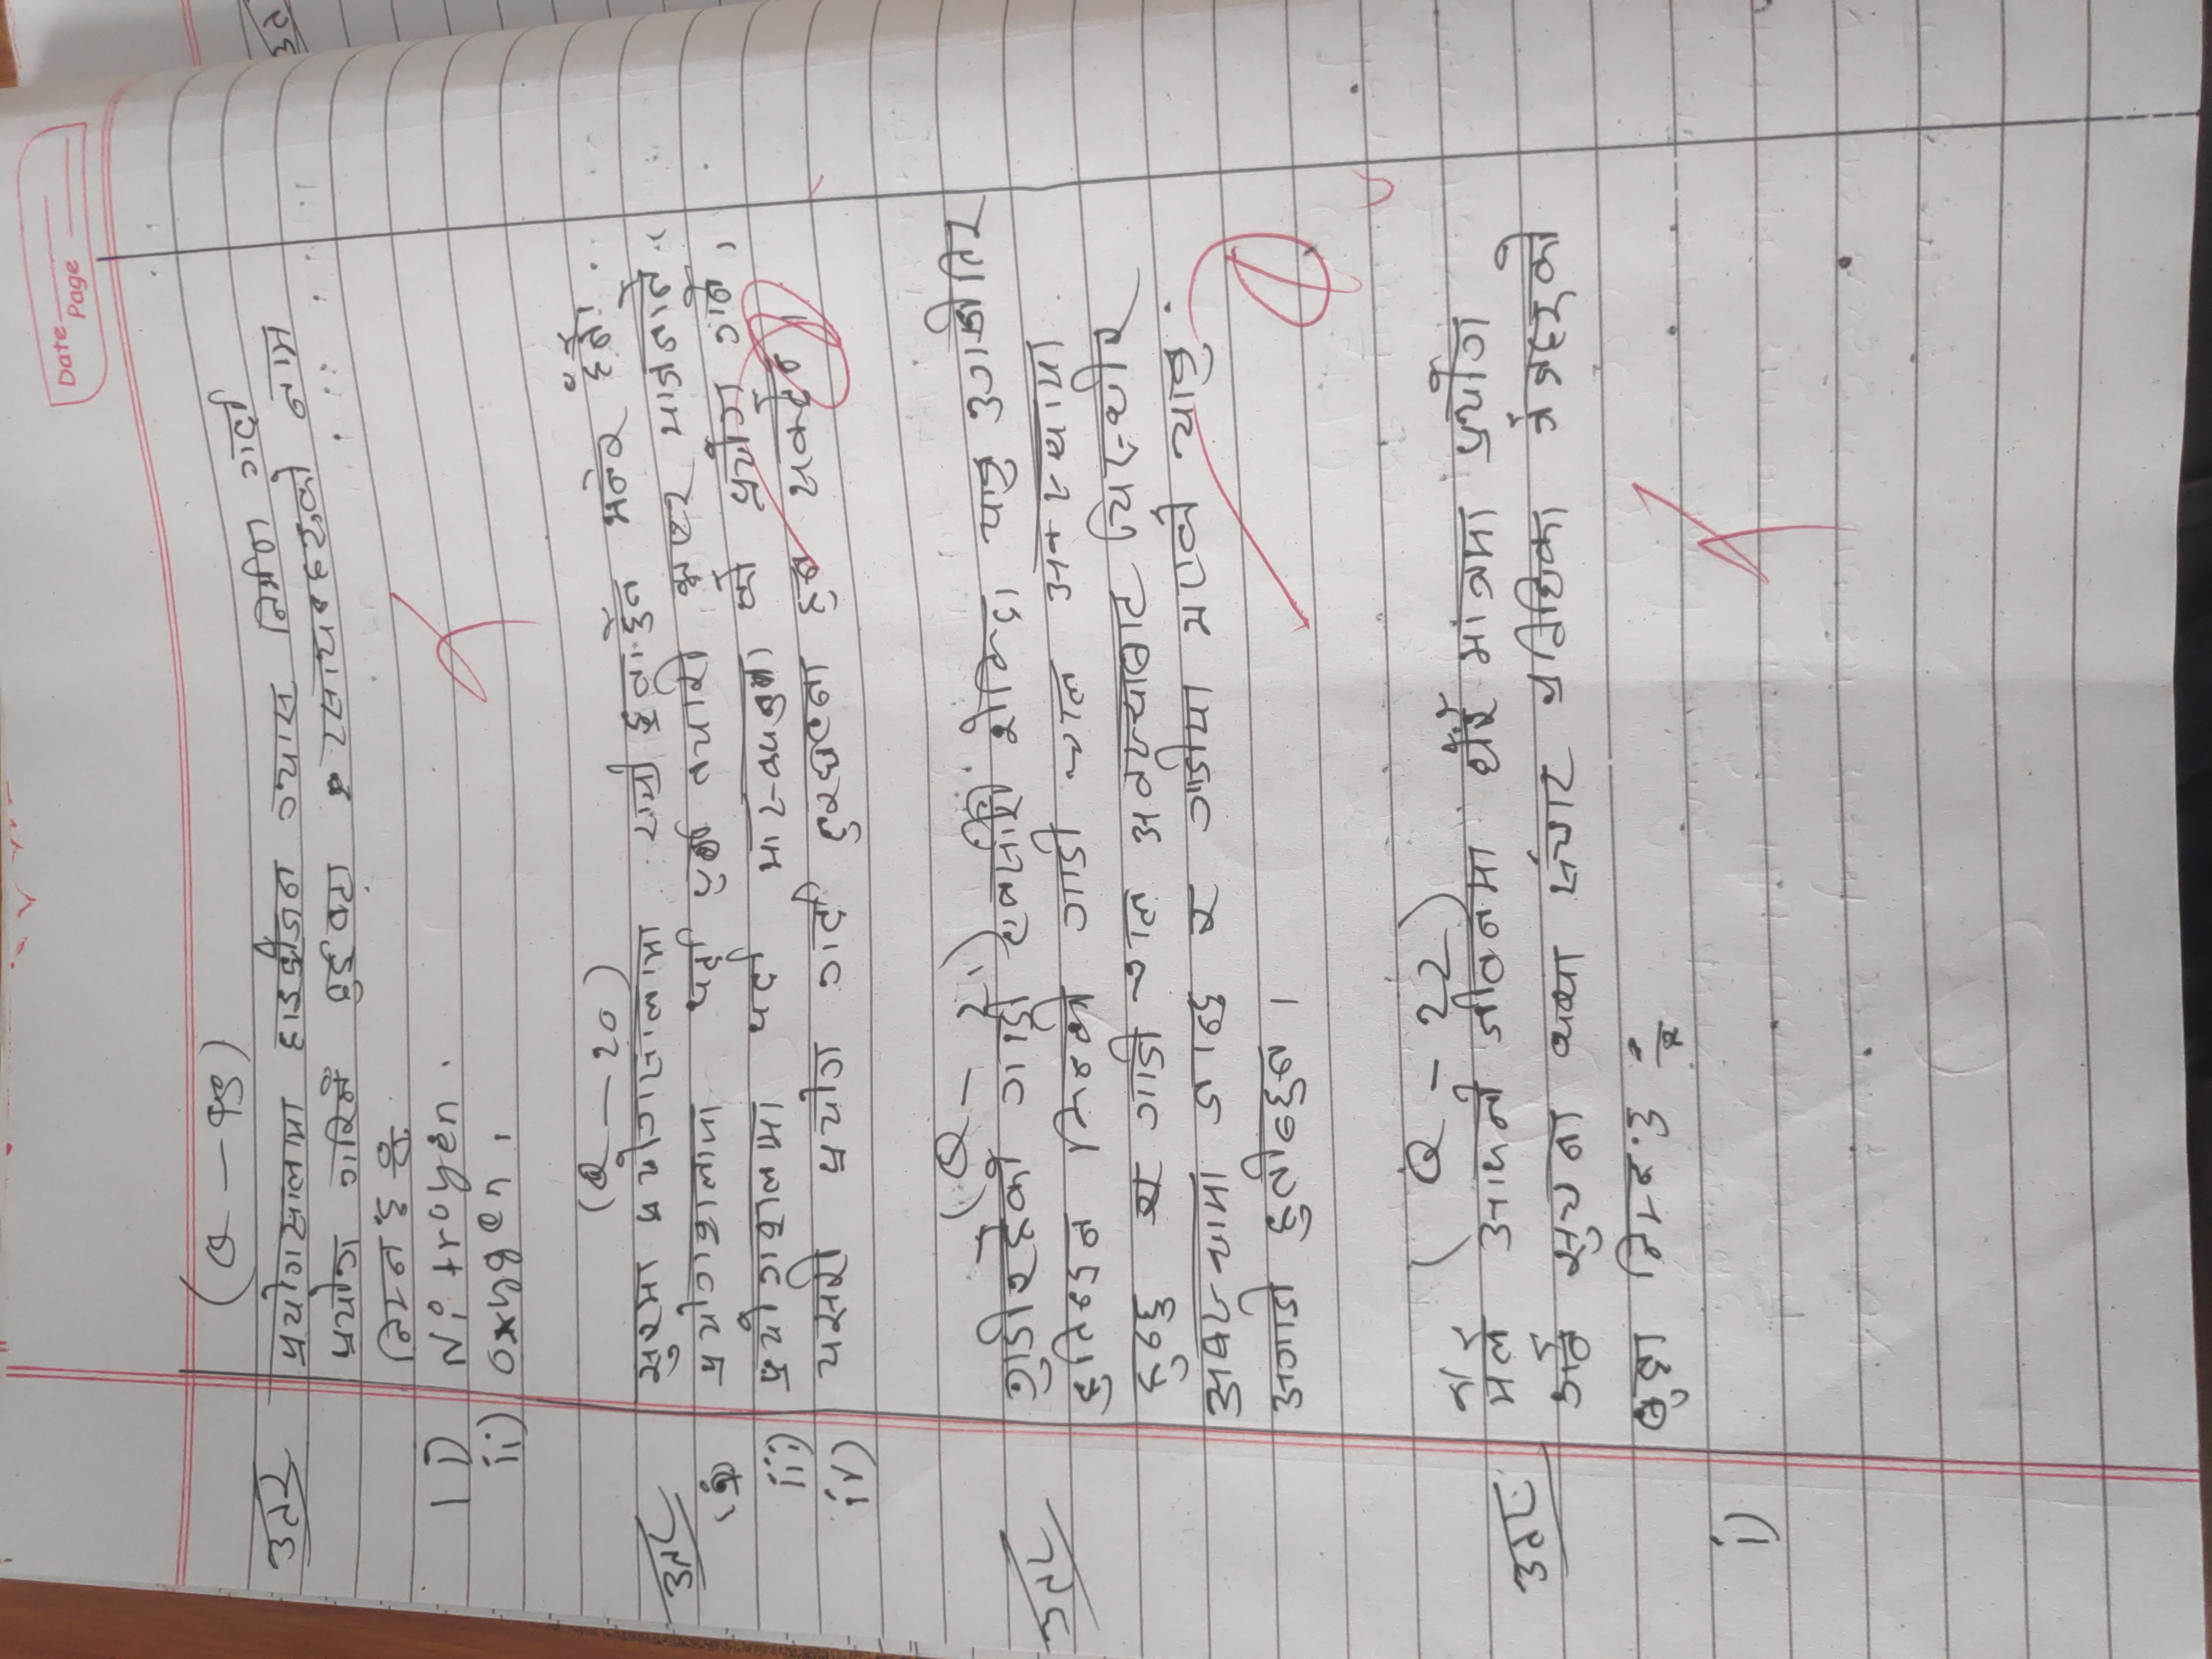 Date
Page
(Q - १९)
उतर प्रयोगसालामा हाइड्रोजन ग्यास निर्माण गर्दा
प्रयोग गरिने दुई वटा रसायनहरुको नाम
निम्न छ
i) Nitrogen.
ii) oxygen,
(Q - 20)
उतर सुरमा प्रयोगसालामा भनेर हेर्ने।
प्रयोगशलामा पर्दा पुर्व तयारी माजनाले
iii) प्रयोगशलामा पर्दा को प्रयोग गर्ने,
iv) यसरी प्रयोग गर्दा दुरघटना हुन सक्दैन।
(Q - 21)
उतर गुडीरहेको गाडी रोकिदा यात्रु अगाडीतिर
हुतिन्छन किनकी गाडी चाल अवस्थामा
हुन्छ र गाडी चाल अवस्थाबाट स्थीर
अवस्थामा जान्छ र गाडीमा भएको यात्रु
अगाडी हुतीन्छन।
(Q - 22)
उतर मैले आफ्नो जीवनमा धेरै मात्रमा प्रयोग
गर्ने सुचना तथा संचार प्रविधिका
बुदा निम्न छ
i)